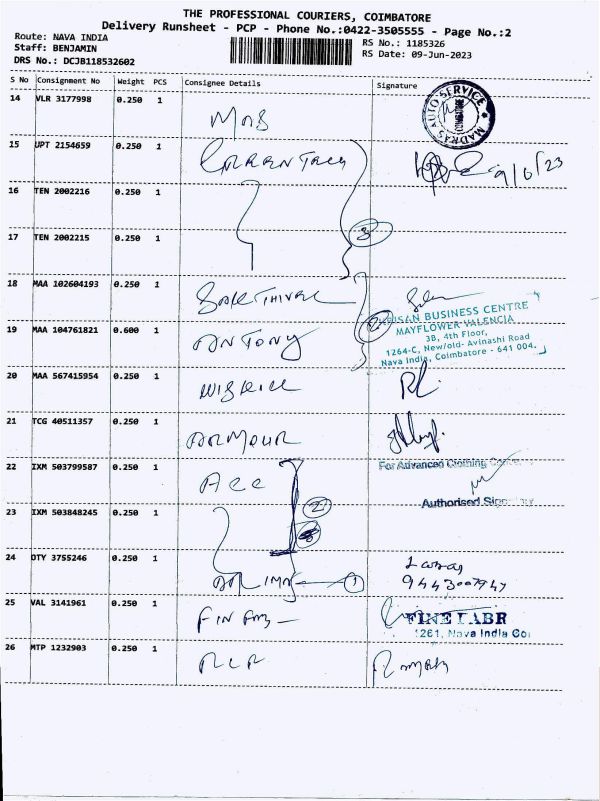 THE PROFESSIONAL COURIERS, COIMBATORE
Delivery Runsheet - PCP - Phone No.:0422-3505555 - Page No.:2
Route: NAVA INDIA
RS No.: 1185326
Staff: BENJAMIN
RS Date: 09-Jun-2023
DRS No.: DCJB118532602
S No Consignment No Weight PCS Consignee Details Signature
14 VLR 3177998 0.250 1
MADRAS AUTO SERVICE
15 UPT 2154659 0.250 1
9/6/23
16 TEN 2002216 0.250 1
17 TEN 2002215 0.250 1 3
18 MAA 102604193 0.250 1 SAKTHIVEL
BUSINESS CENTRE
MAYFLOWER VALENCIA
3B, 4th Floor,
1264-C, New/old- Avinashi Road
Nava India, Coimbatore - 641 004.
19 MAA 104761821 0.600 1 ANTONY 2
20 MAA 567415954 0.250 1
21 TCG 40511357 0.250 1 ARMOUR
For Advanced Clothing
22 IXM 503799587 0.250 1 ACC
Authorised
23 IXM 503848245 0.250 1 2
24 OTY 3755246 0.250 1 1
9443007947
25 VAL 3141961 0.250 1 FIN FAB
FINE FABR
1261, Nava India Coi
26 MTP 1232903 0.250 1